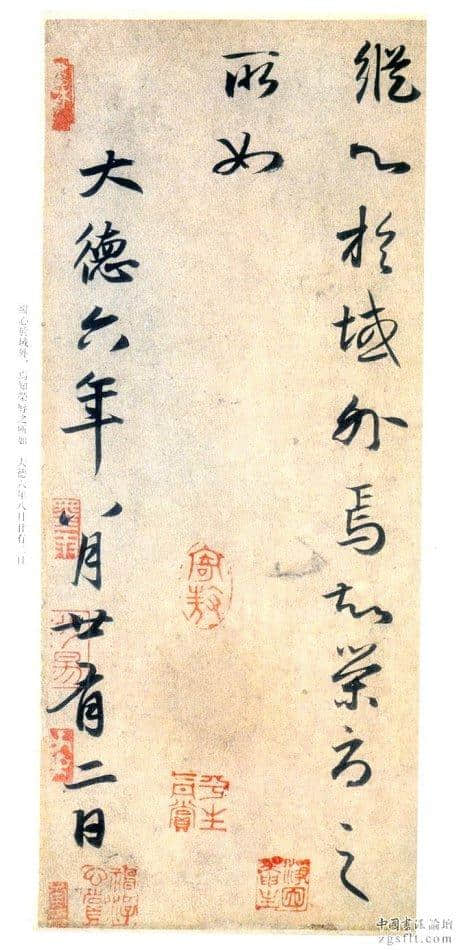 縱心於域外焉知榮辱之
所如
大德六年八月廿有二日
平生真賞
心於域外，焉知榮辱之所如 大德六年八月廿有二日
中國書法論壇
zgsflt.com